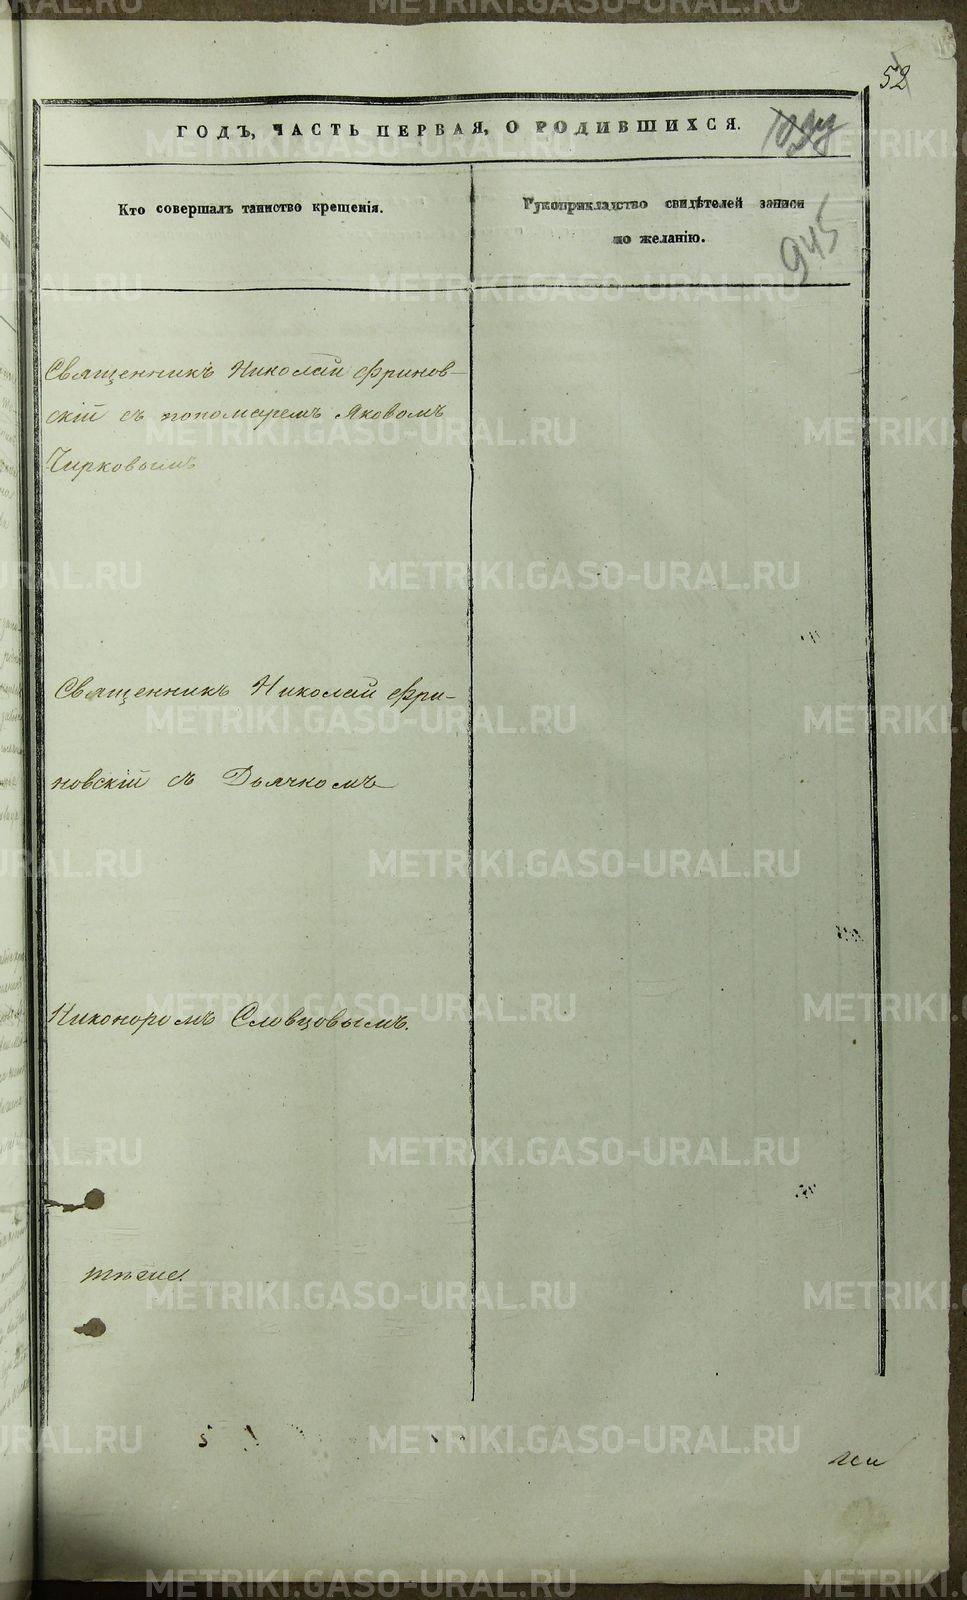 52
ГОДЪ, ЧАСТЬ ПЕРВАЯ, О РОДИВШИХСЯ.
945
Кто совершалъ таинство крещенія.
Рукоприкладство свидѣтелей записи
по желанію.
Священникъ Николай Фринов-
скій съ пономаремъ Яковомъ
Чирковымъ
Священникъ Николай Фри-
новскій съ Дьячкомъ
Никоноромъ Словцовымъ.
тѣже.
METRIKI.GASO-URAL.RU